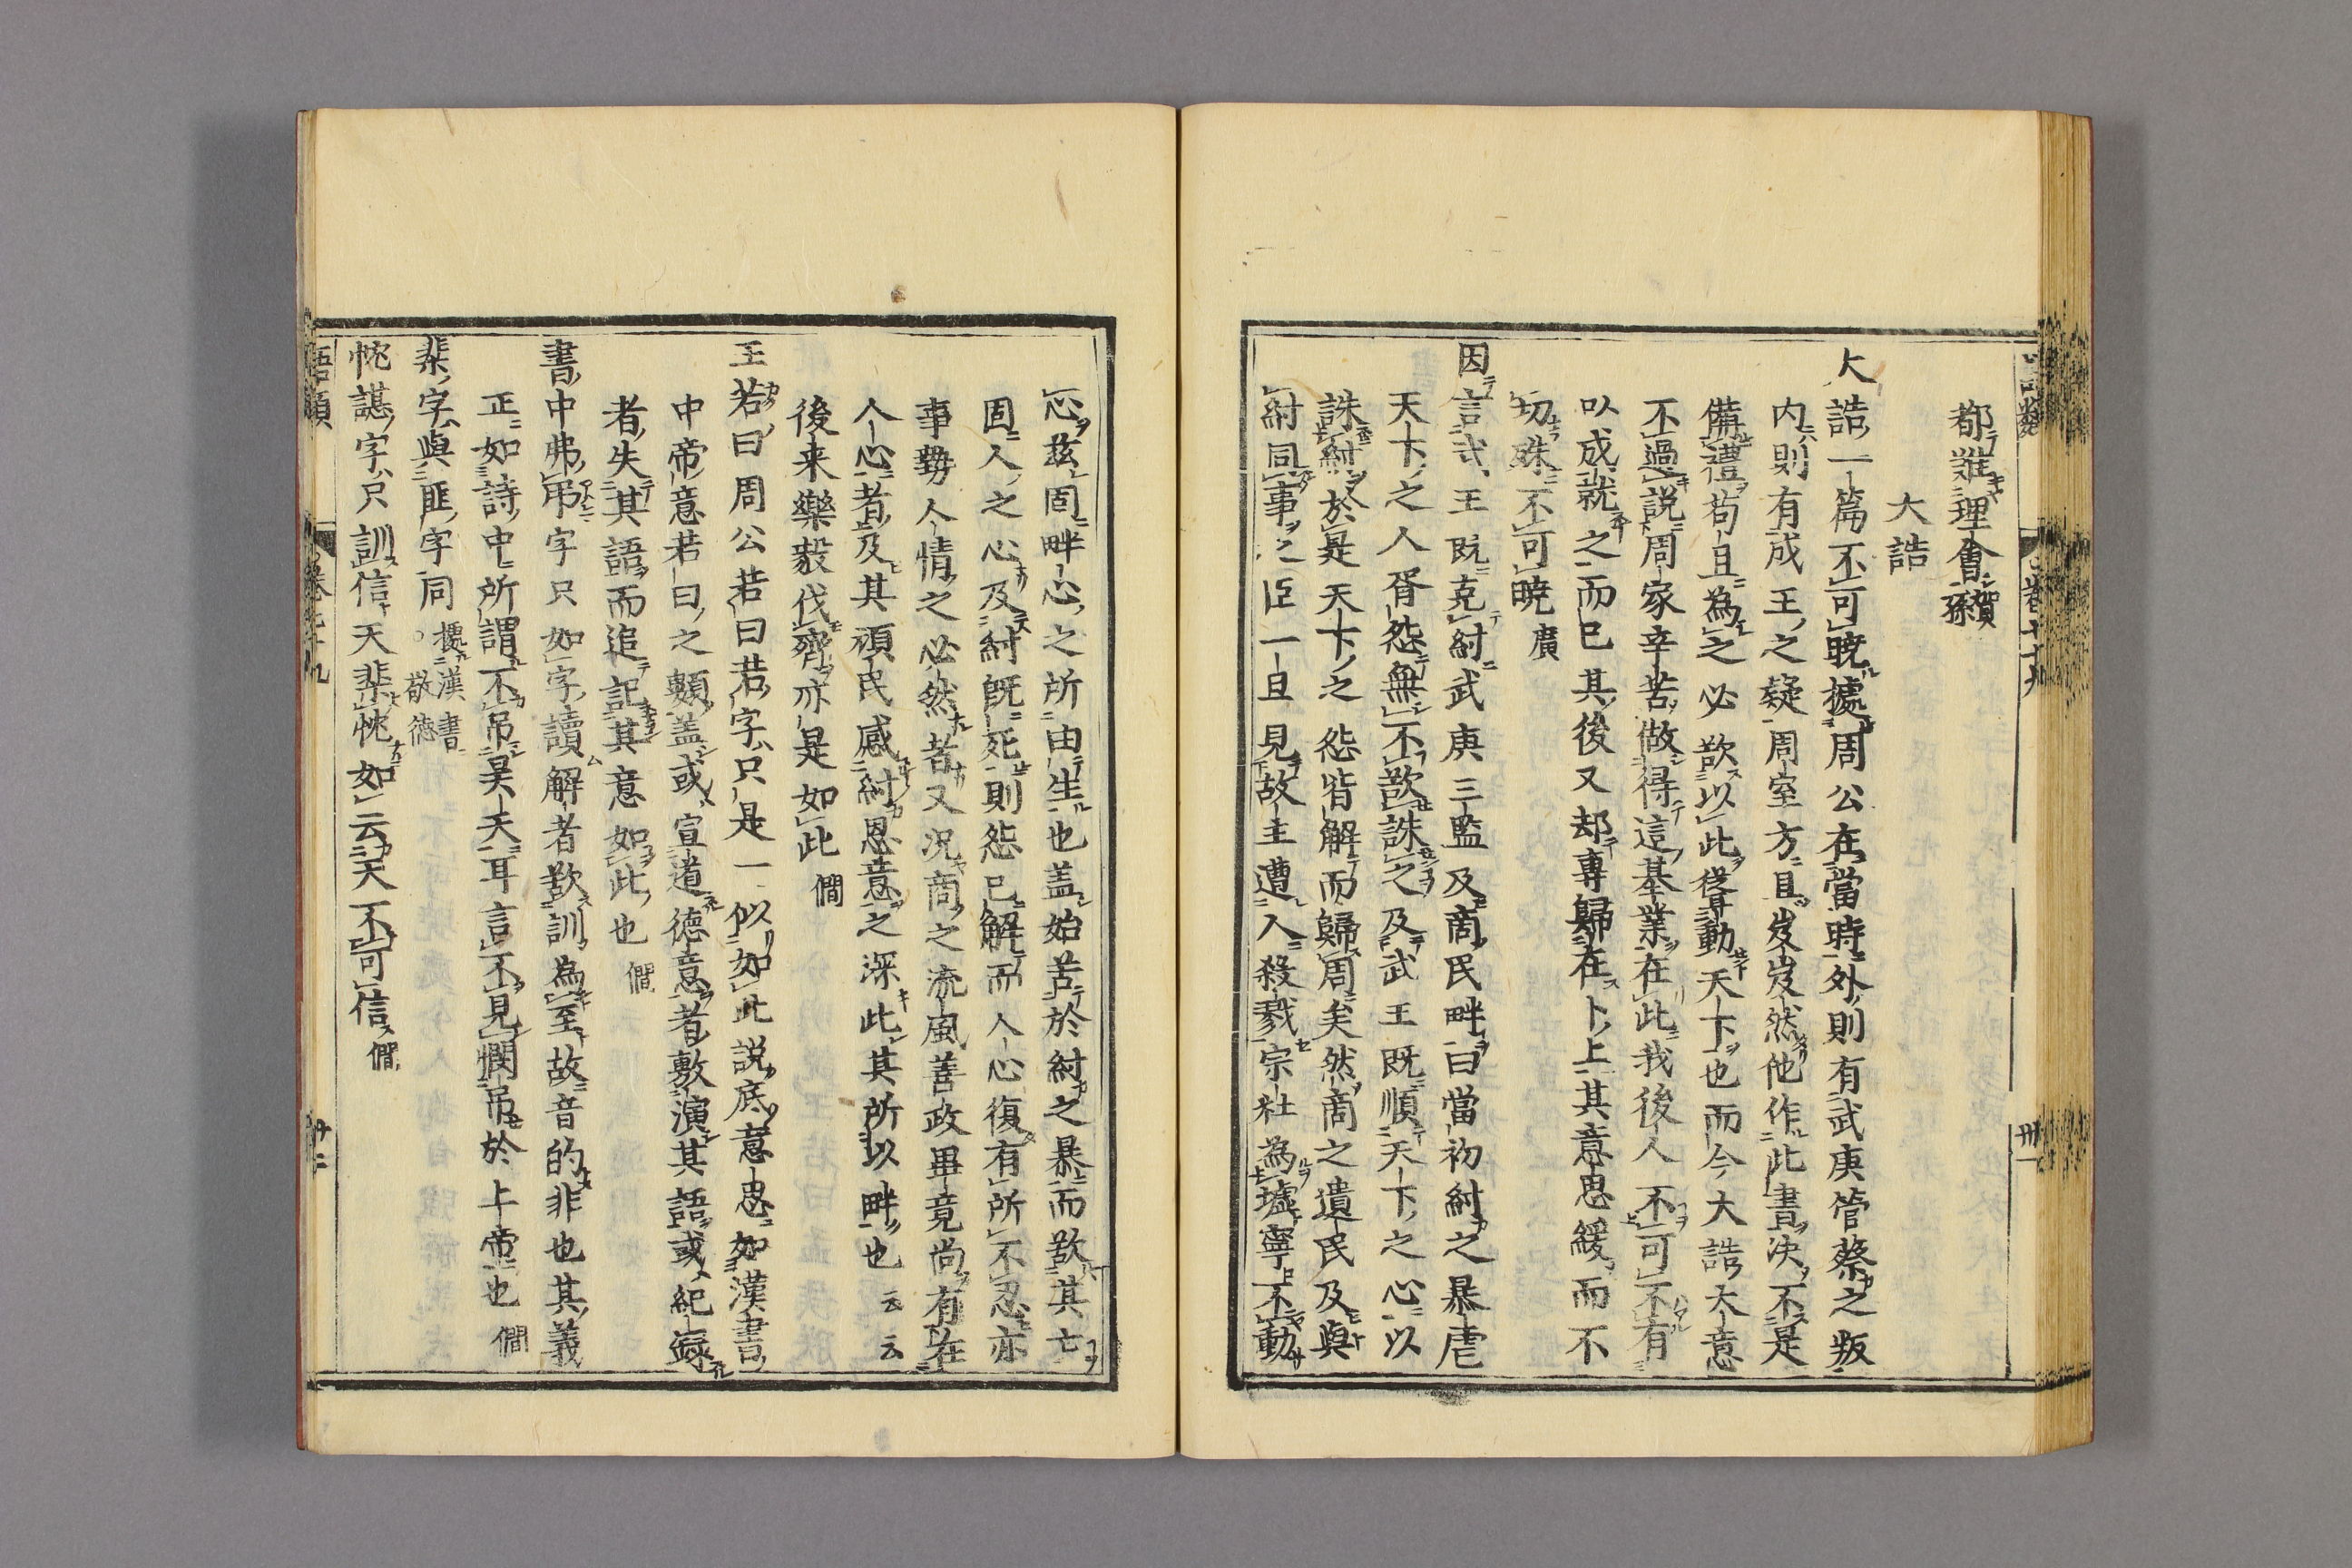 都難理會賀孫
大誥
大誥一篇不可曉據周公在當時外則有武庚管蔡之叛
内則有成王之疑周室方且岌岌然他作此書决不是
備禮苟且為之必欲以此聳動天下也而今大誥大意
不過說周家辛苦做得這基業在此我後人不可不有
以成就之而已其後又却專歸在卜上其意思緩而不
切殊不可曉廣
因言武王既克紂武庚三監及商民畔曰當初紂之暴虐
天下之人胥怨無不欲誅之及武王既順天下之心以
誅紂於是天下之怨皆解而歸周矣然商之遺民及與
紂同事之臣一旦見故主遭人殺戮宗社為墟寧不動
心茲固畔心之所由生也盖始苦於紂之暴而欲其亡
固人之心及紂既死則怨已解而人心復有所不忍亦
事勢人情之必然者又况商之流風善政畢竟尚有在
人心者及其頑民感紂恩意之深此其所以畔也云云
後来樂毅伐齊亦是如此僩
王若曰周公若曰若字只是一似如此說底意思如漢書
中帝意若曰之類盖或宣道德意者敷演其語或紀錄
者失其語而追記其意如此也僩
書中弗弔字只如字讀解者欲訓為至故音的非也其義
正如詩中所謂不弔昊天耳言不見憫弔於上帝也僩
棐字與匪字同據漢書敬德
忱諶字只訓信天棐忱如云天不可信僩
語類
卷七十九
卅二
卷七十九
卅一